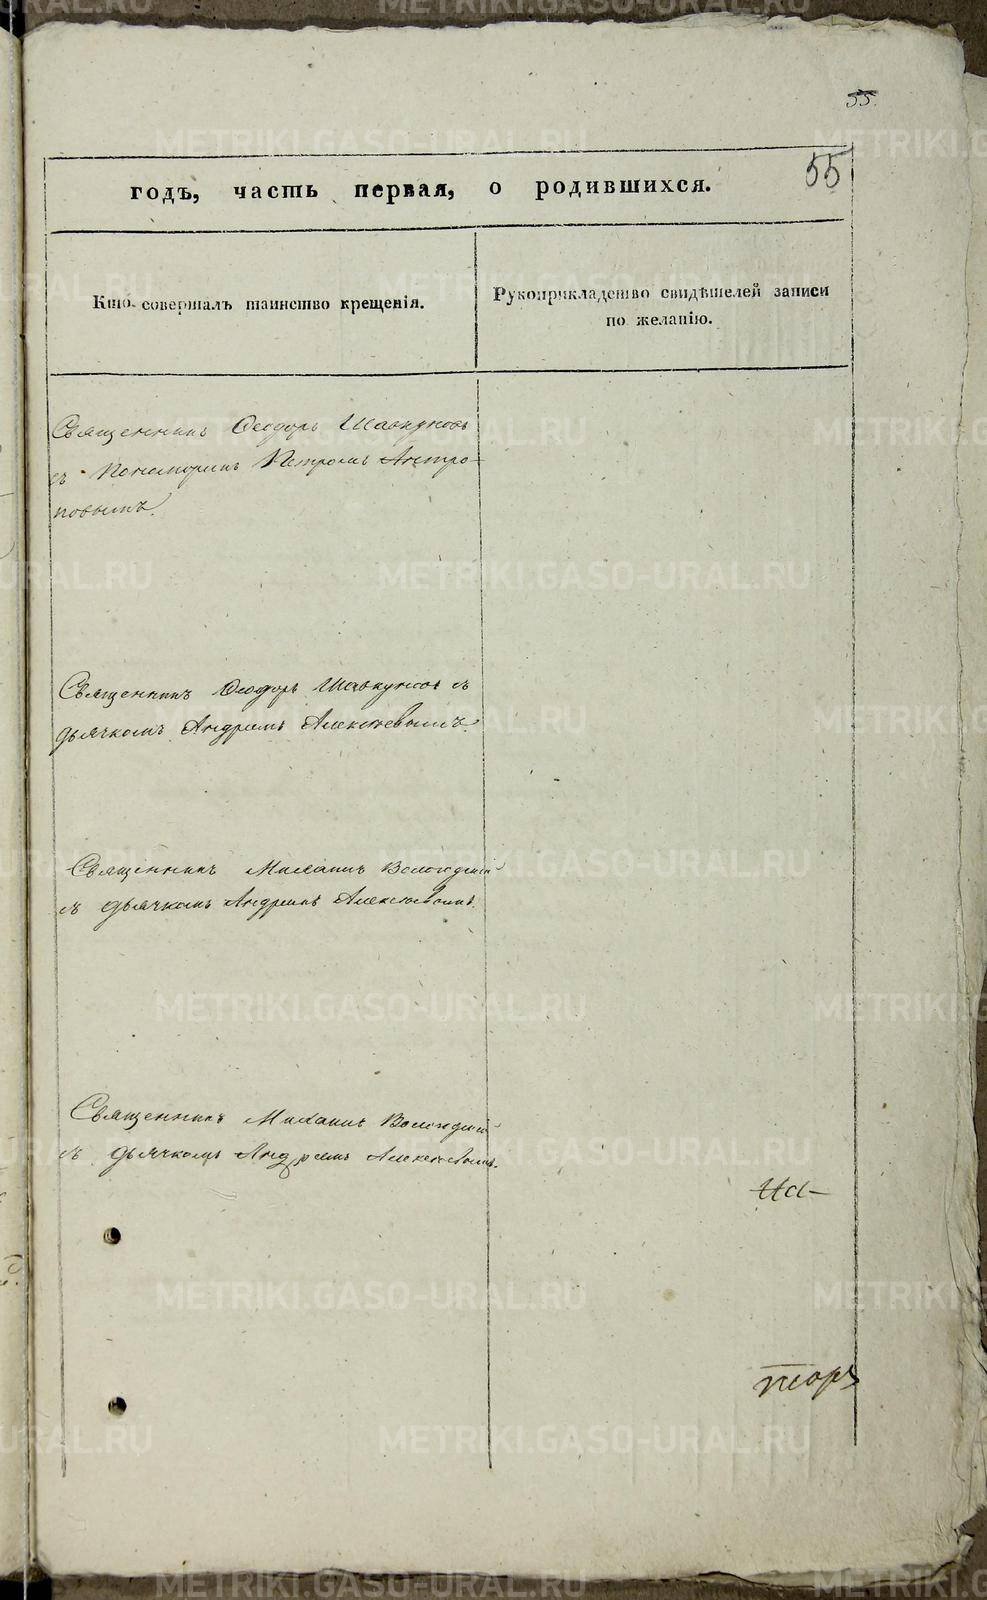 55
55
годъ, часть первая, о родившихся.
Кто совершалъ таинство крещенія.
Рукоприкладство свидѣтелей записи
по желанію.
Священникъ Ѳеодоръ Шавкуновъ
съ Пономаремъ Петромъ Антро-
повымъ.
Священникъ Ѳеодоръ Шавкуновъ съ
дьячкомъ Андреемъ Алексѣевымъ.
Священникъ Михаилъ
съ дьячкомъ Андреемъ Алексѣевымъ.
Священникъ Михаилъ
съ дьячкомъ Андреемъ Алексѣевымъ.
METRIKI.GASO-URAL.RU